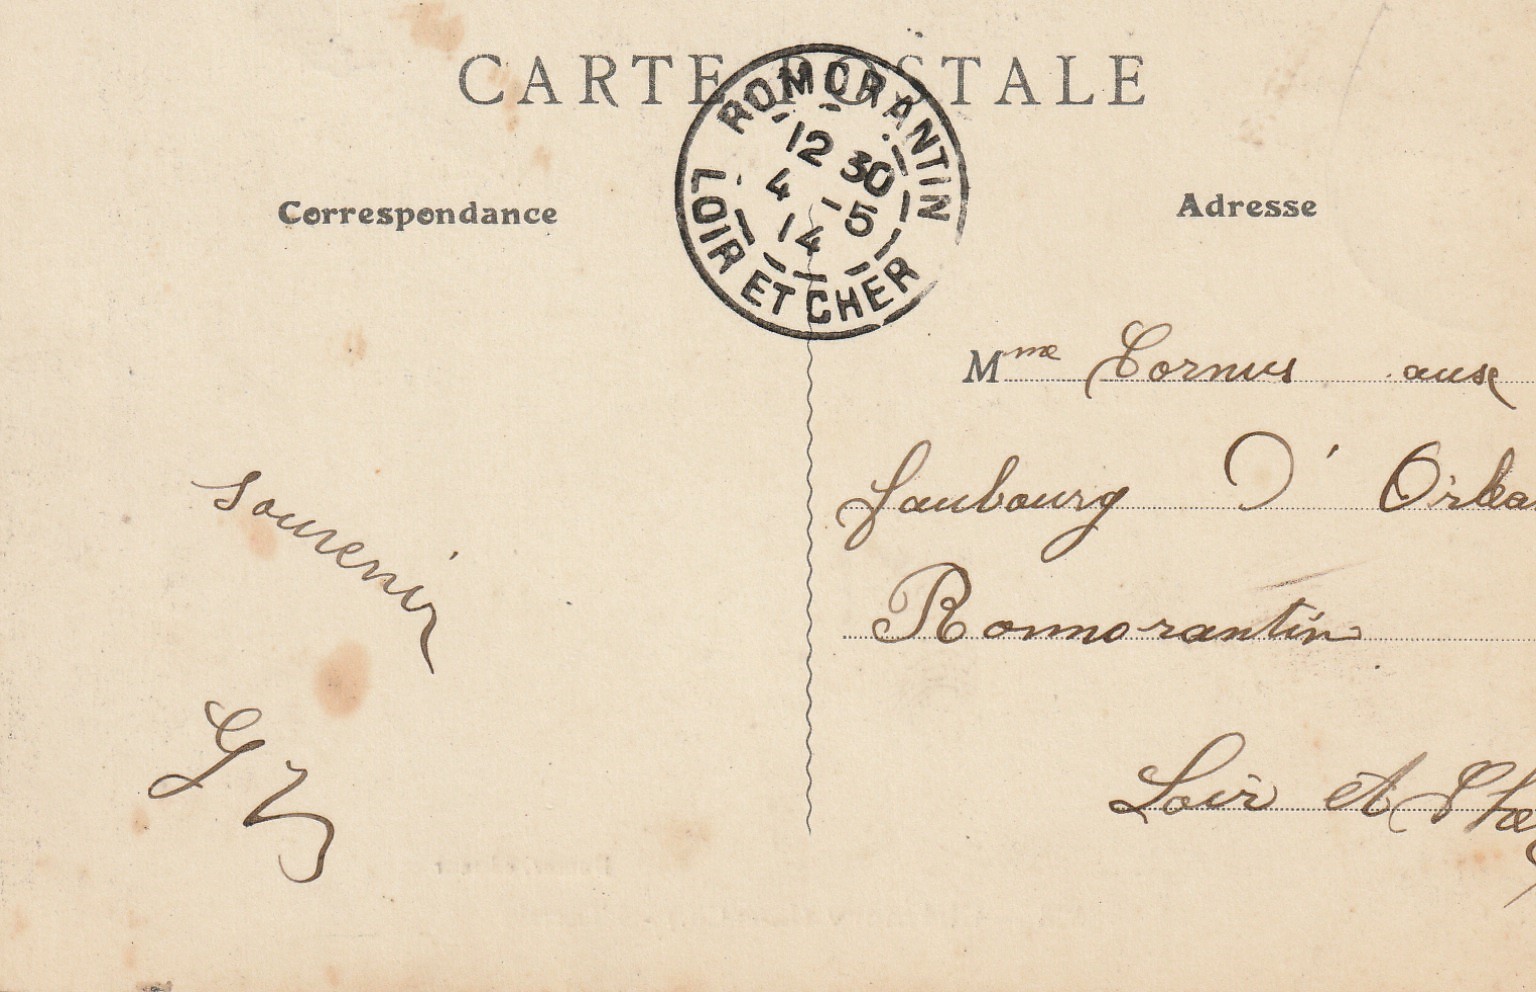 CARTE POSTALE
ROMORANTIN
12 30
4 -5
14
LOIR ET CHER
Correspondance
Adresse
Mme Cornus aux
faubourg D' Orlea
Romorantin
Loir et Che
souvenir